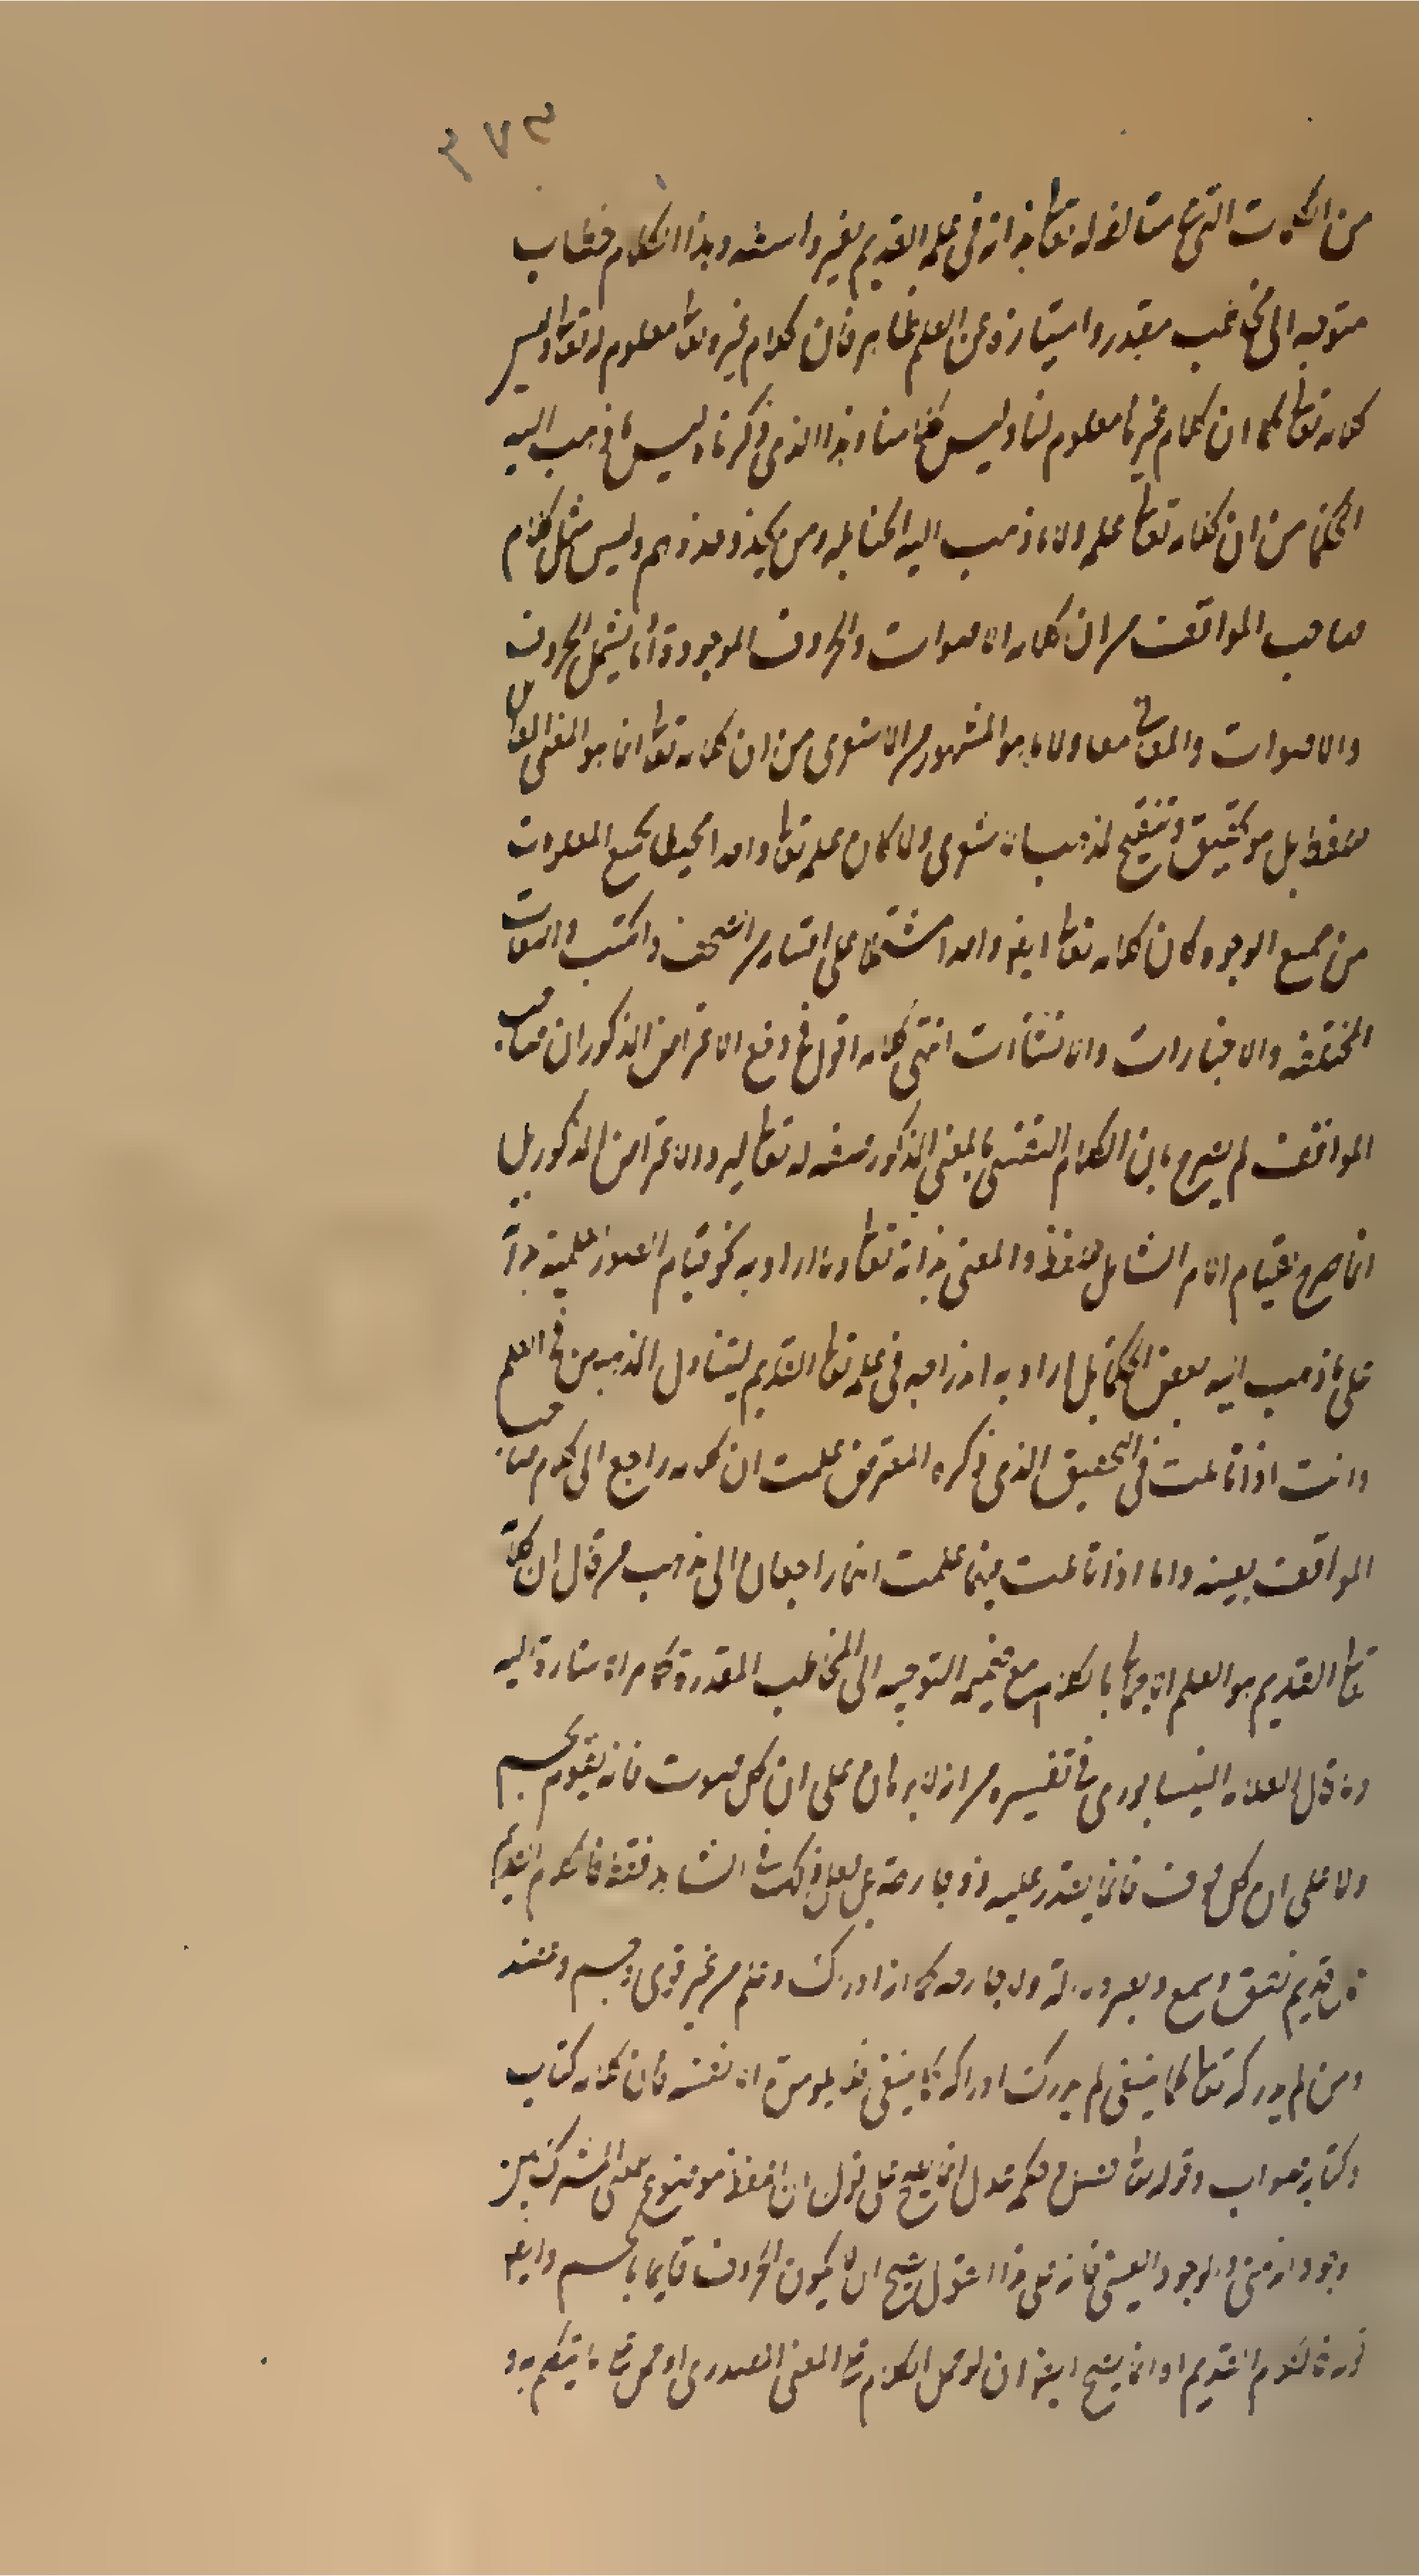 ٣٧٣
من الكلمات التي رتبها الله تعالى بذاته في علمه القديم بغير واسطة وهذا الكلام خطاب
متوجه الى مخاطب مقدر وامتيازه عن العلم ظاهر فان كلام غيره تعالى معلوم له تعالى وليس
كلامه تعالى كما ان كلام غيرنا معلوم لنا وليس كلامنا وهذا الذي ذكرناه ليس ما ذهب اليه
الحكما من ان كلامه تعالى علمه ولا ما ذهب اليه الحنابلة ومن يحذو حذوهم وليس مثل كلام
صاحب المواقف من ان كلامه الاصوات والحروف الموجودة انما يشمل الحروف
والاصوات والمعاني معا ولا ما هو المشهور من الاشعري من ان كلامه تعالى انما هو المعنى المقابل
للفظ بل هو تحقيق وتنقيح لمذهب الاشعري ولما كان علمه تعالى واحدا محيطا بجميع المعلومات
من جميع الوجوه كان كلامه تعالى ايضا واحدا مشتملا على اقسامه من الصحف والكتب واللغات
المختلفة والاخبارات والانشاآت انتهى كلامه اقول في دفع الاعتراض المذكور ان صاحب
المواقف لم يصرح بان الكلام النفسي بالمعنى المذكور صفة له تعالى ليرد الاعتراض المذكور بل
انما صرح بقيام الامر الشامل للفظ والمعنى بذاته تعالى وما اراد به نحو قيام الصور علمية بذاته
على ما ذهب اليه بعض الحكما بل اراد به اندراجه في علمه تعالى القديم ليتناول المذهبين في العلم
وانت اذا تاملت في التحقيق الذي ذكره المعترض علمت ان كلامه راجع الى كلام صاحب
المواقف بعينه واما اذا تاملت فيهما علمت انهما راجعان الى مذهب من قال ان كلامه
تعالى القديم هو العلم مع ضميمة التوجيه الى المخاطب المقدرة كما مر الاشارة اليه
وما قال العلامة النيسابوري في تفسيره من انه لا برهان على ان كل صوت فانه يقوم بجسم
ولا على ان كل حرف فانما يقدر عليه ذو جارحة بل لعل ذلك في الشاهد فقط فالكلام القديم
قديم نطق وسمع وبصر ولا جارحة كما انه ادرك وعلم من غير قوى وجسم
ومن لم يدركه تعالى كما ينبغي لم يدرك ادراكه كما ينبغي فلا يلومن الا نفسه فان كلامه كتاب
وكتابه صواب وقوله تعالى فصل وحكمه عدل انما يصح على قول ان اللفظ موضوع لمعنى المشترك بين
وجوده الذهني والوجود العيني فانه على هذا القول يصح ان لا يكون الحروف قايما بالجسم وايضا
قوله فالكلام القديم انما يصح ايضا ان لو حمل الكلام على المعنى المصدري او حمل على ما يتكلم به و